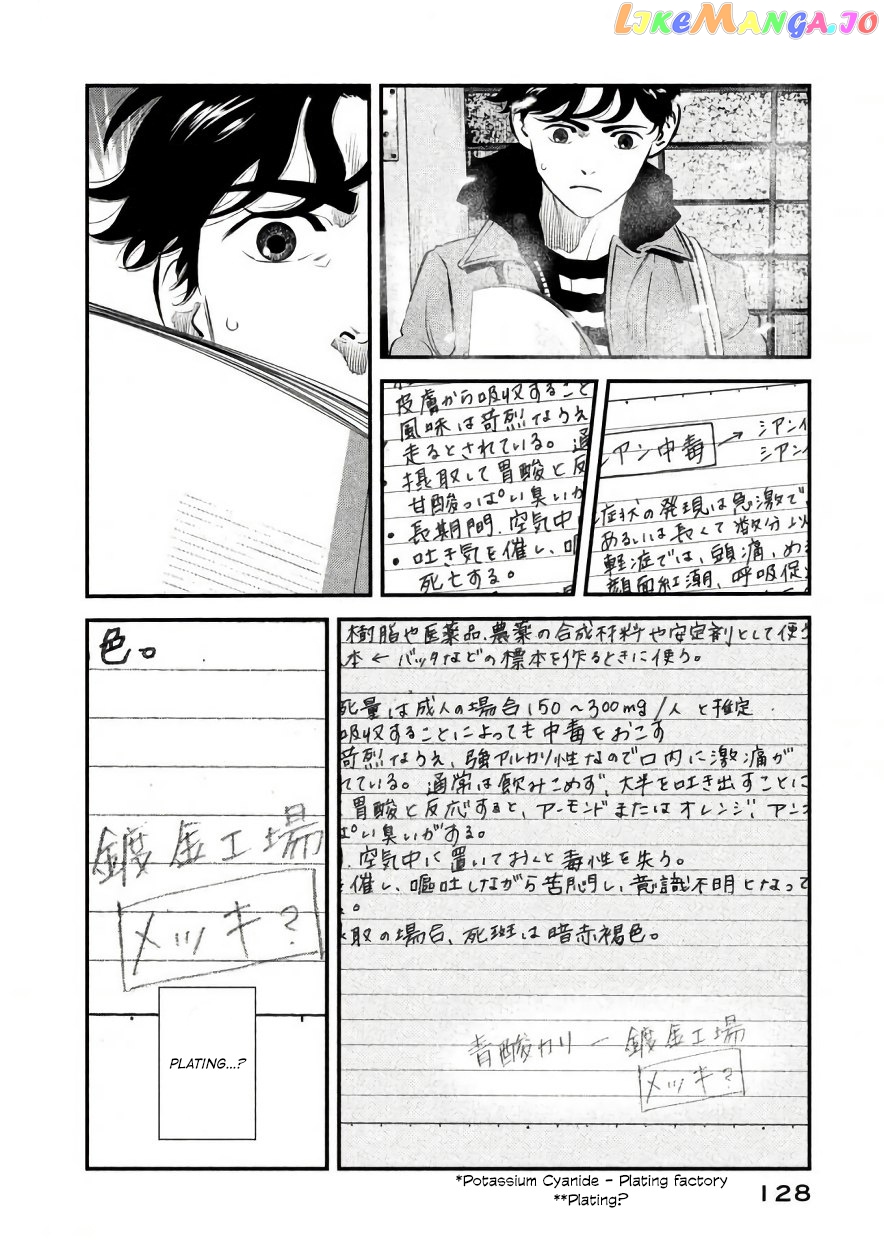 LIKEMANGA.IO
皮膚から吸収すること
風味は苛烈なうえ
走るとされている。通
摂取して胃酸と反
甘酸っぱい臭いが
・長期間、空気中
・吐き気を催し、呕
死亡する。
シアン中毒 → シアン
シアン
症状の発現は急激で
あるいは長くて数分以
軽症では、頭痛、め
顔面紅潮、呼吸促
色。
鍍金工場
メッキ?
PLATING...?
樹脂や医薬品、農薬の合成材料や安定剤として使
本 ← バッタなどの標本を作るときに使う。
死量は成人の場合150~300mg/人と推定
吸収することによっても中毒をおこす
苛烈なうえ、強アルカリ性なので口内に激痛が
れている。通常は飲みこめず、大半を吐き出すことに
胃酸と反応すると、アーモンドまたはオレンジ、アン
ぱい臭いがする。
、空気中に置いておくと毒性を失う。
催し、嘔吐しながら苦悶し、意識不明となって
。
取の場合、死斑は暗赤褐色。
青酸カリ ー 鍍金工場
メッキ?
*Potassium Cyanide - Plating factory
**Plating?
128